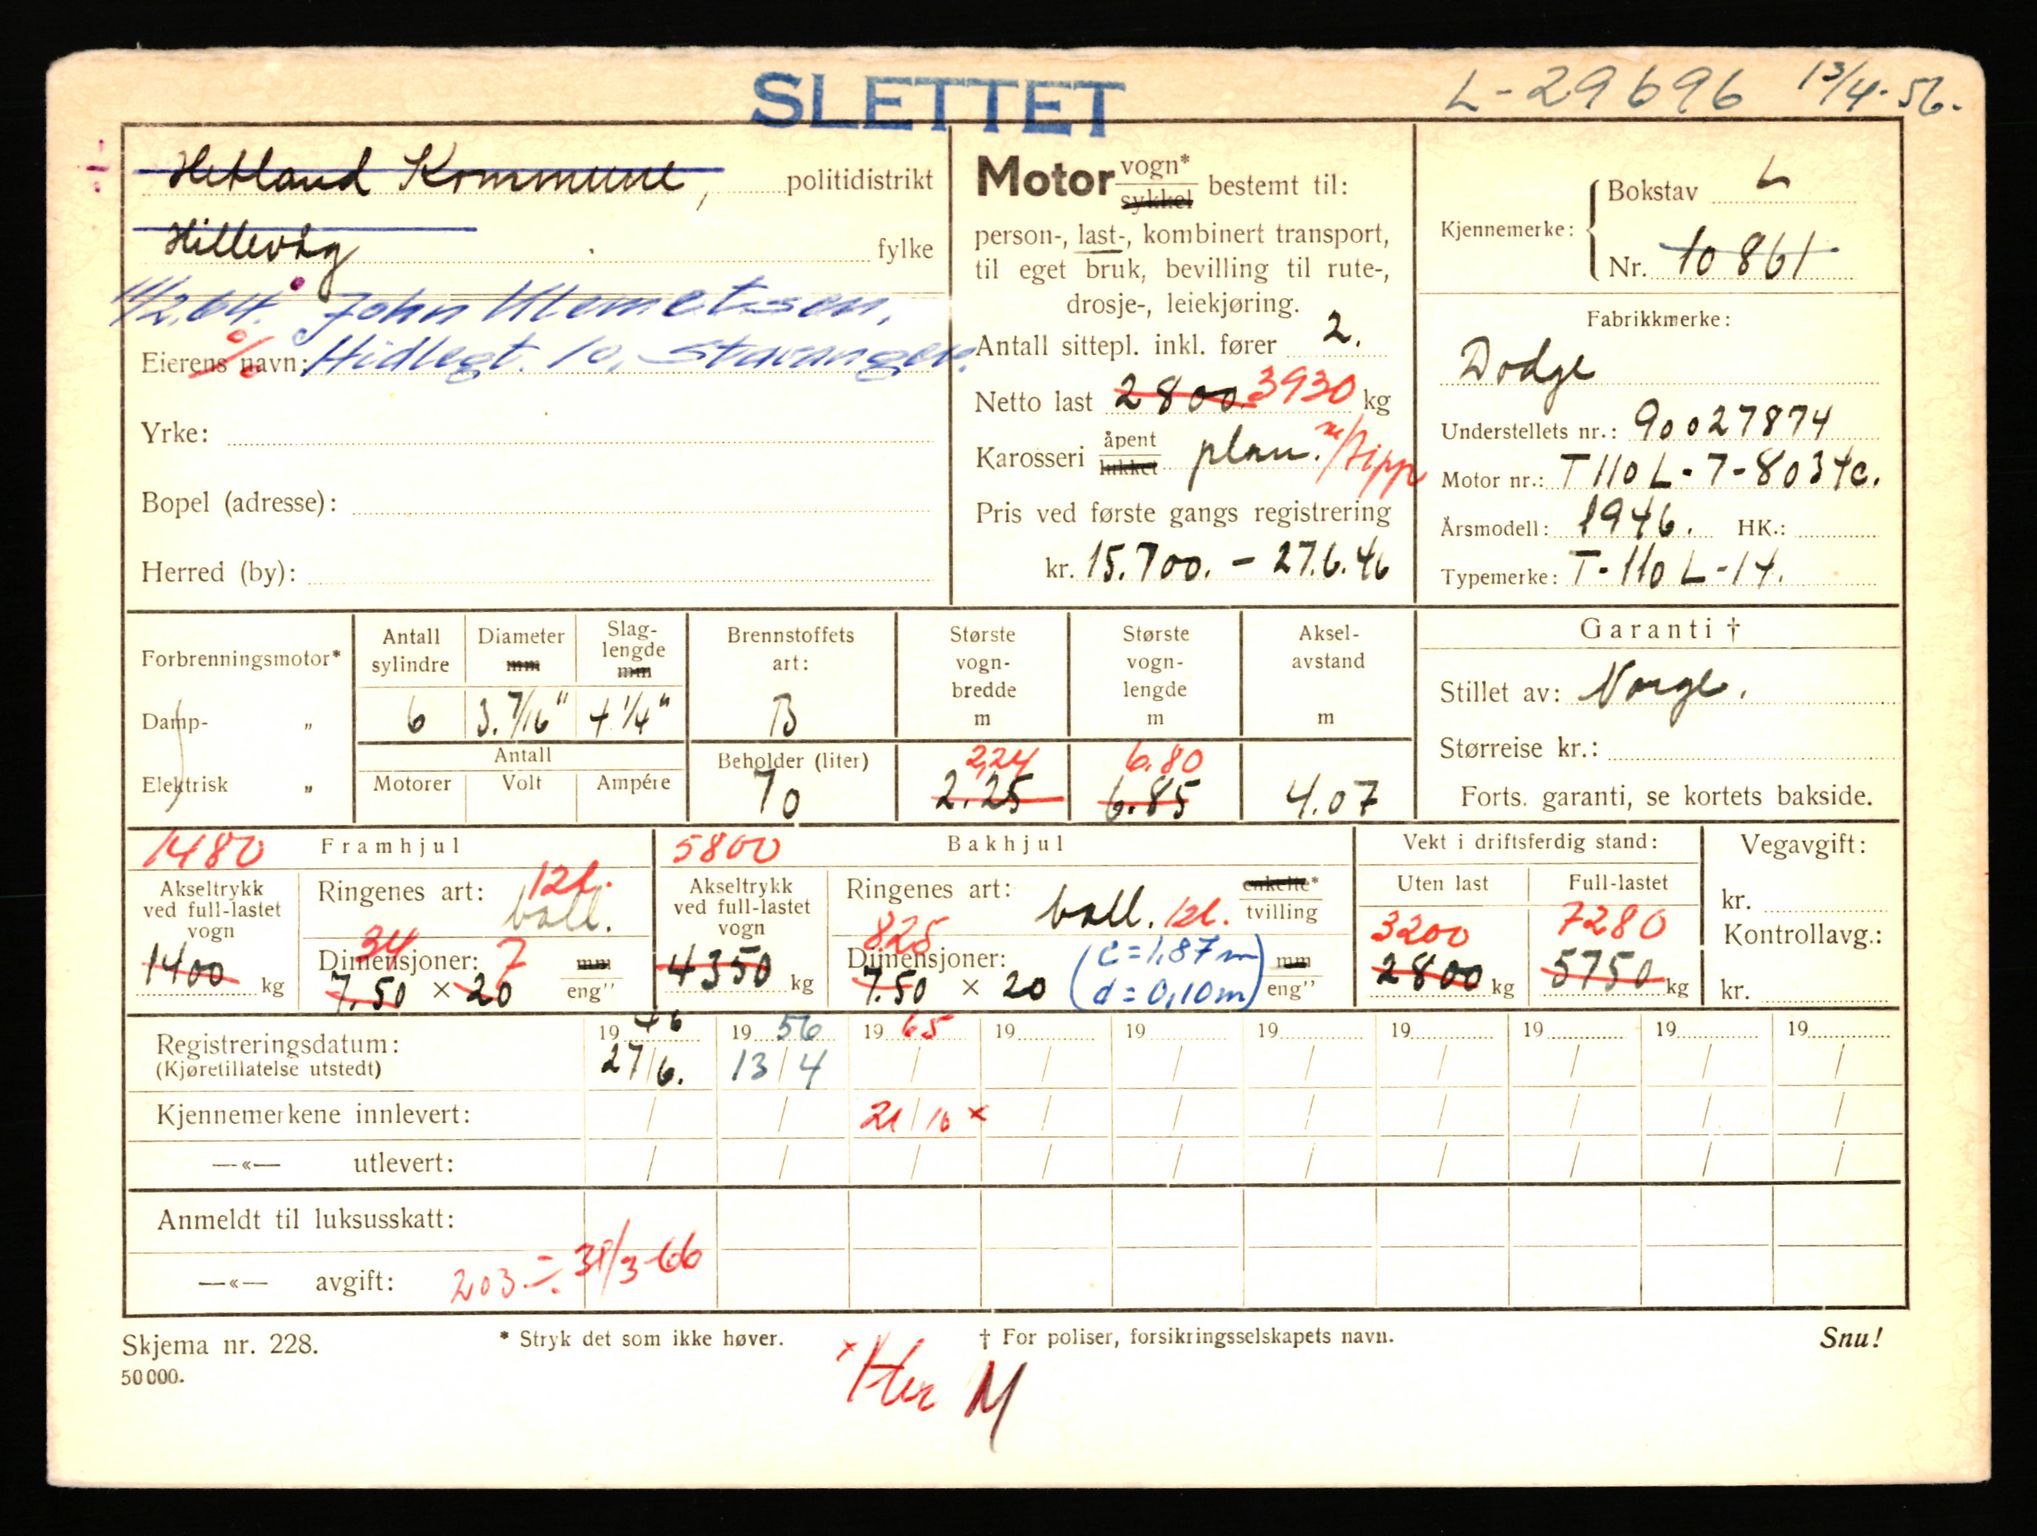 SLETTET
L-29696 13/4-56.
Hetland Kommune, politidistrikt
Hillevåg fylke
14/2.64. John Klemetsen,
Eierens navn: Hidlegt. 10, Stavanger.
Yrke:
Bopel (adresse):
Herred (by):
Motor vogn* sykkel bestemt til:
person-, last-, kombinert transport,
til eget bruk, bevilling til rute-,
drosje-, leiekjøring.
Antall sittepl. inkl. fører 2.
Netto last 2800 3930 kg
Karosseri åpent lukket plan. m/tipp
Pris ved første gangs registrering
kr. 15.700. - 27.6.46
Kjennemerke: Bokstav L
Nr. 10861
Fabrikkmerke:
Dodge
Understellets nr.: 90027874
Motor nr.: T110L-7-8034C.
Årsmodell: 1946. HK.:
Typemerke: T-110 L-14.
Forbrenningsmotor*
Damp- „
Elektrisk „
Antall sylindre
Diameter mm
Slaglengde mm
6 3.7/16" 4 1/4"
Antall
Motorer Volt Ampére
Brennstoffets art:
B
Beholder (liter)
70
Største vogn-bredde m
2,24
2.25
Største vogn-lengde m
6.80
6.85
Aksel-avstand m
4.07
Garanti †
Stillet av: Norge.
Størreise kr.:
Forts. garanti, se kortets bakside.
1480 Framhjul
Akseltrykk ved full-lastet vogn
1400 kg
Ringenes art: 12l.
ball.
34 7
Dimensjoner: mm
7.50 × 20 eng"
5800 Bakhjul
Akseltrykk ved full-lastet vogn
4350 kg
Ringenes art: ball. 12l. enkelte* tvilling
825
Dimensjoner: (c = 1,87 m mm
7.50 × 20 d = 0,10 m) eng"
Vekt i driftsferdig stand:
Uten last Full-lastet
3200 7280
2800 kg 5750 kg
Vegavgift:
kr.
Kontrollavg.:
kr.
Registreringsdatum: 19 46 19 56 19 65 19 19 19 19 19 19 19
(Kjøretillatelse utstedt) 27/6. 13/4 / / / / / / / /
Kjennemerkene innlevert: / / 21/10 × / / / / / / /
—«— utlevert: / / / / / / / / / /
Anmeldt til luksusskatt:
—«— avgift: 203 ÷ 31/3-66
Skjema nr. 228.
50 000.
* Stryk det som ikke høver.
† For poliser, forsikringsselskapets navn.
Snu!
× Her M